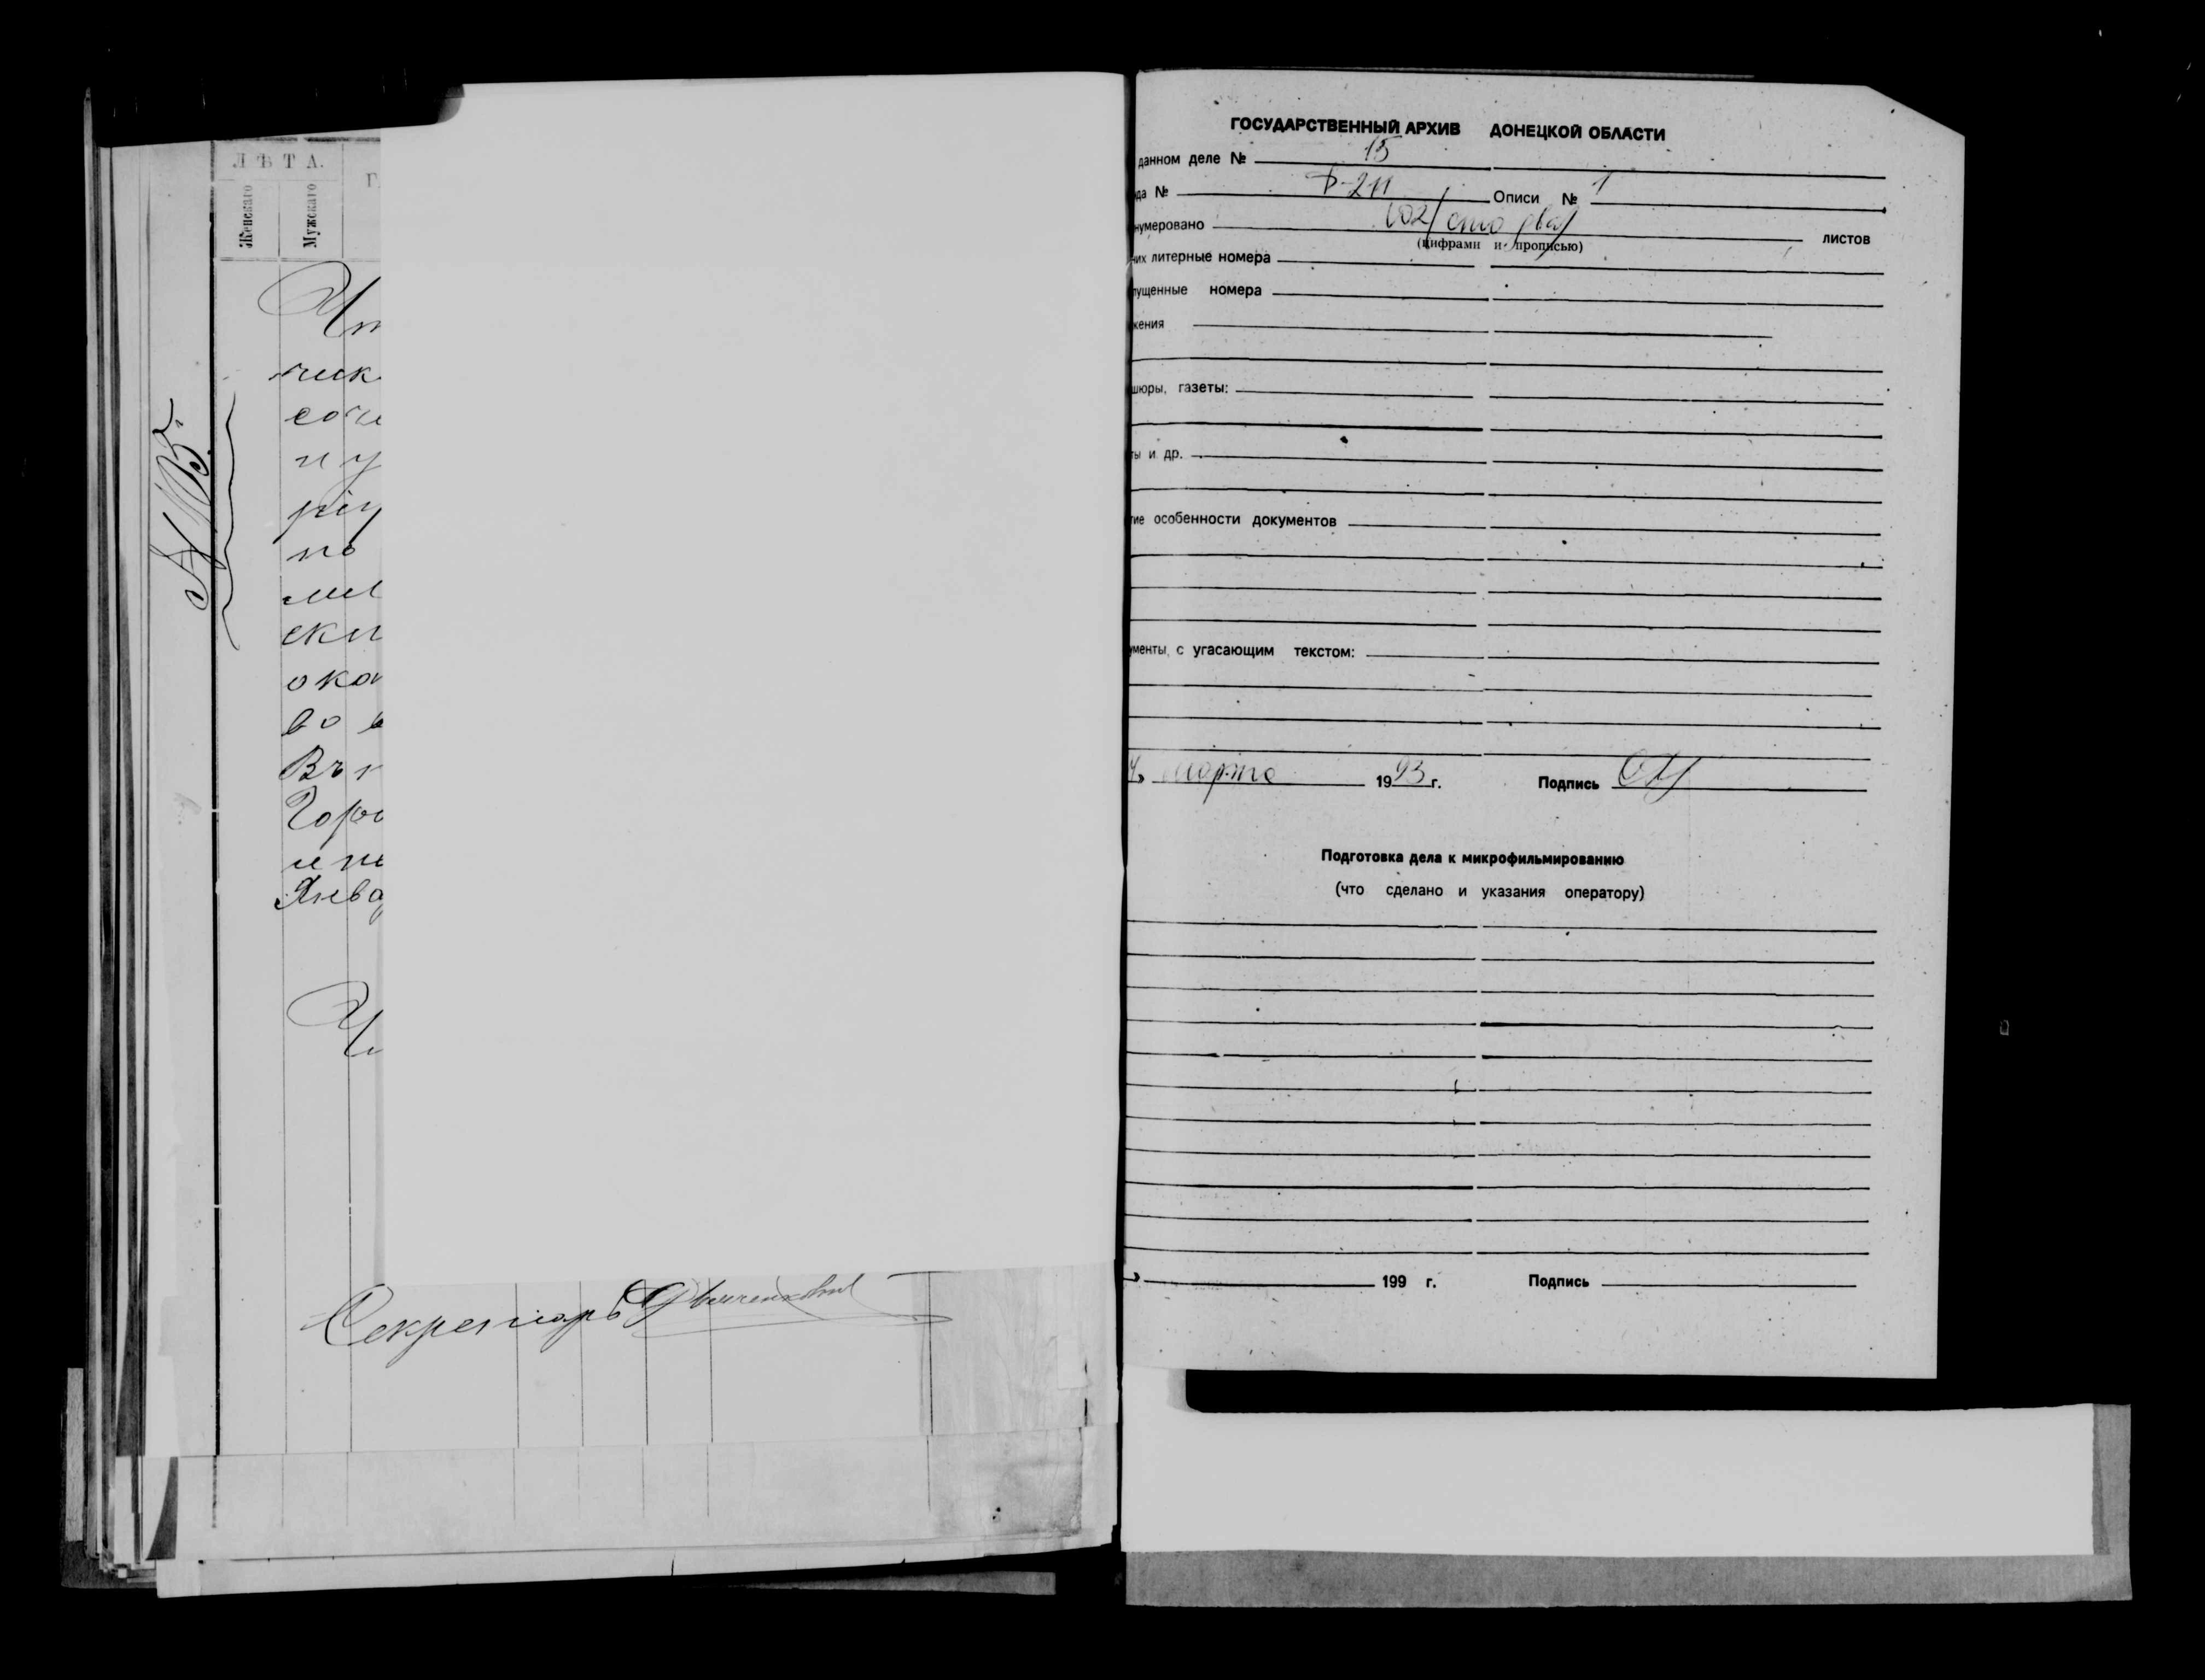 Л Ѣ Т А.
Женскаго
Мужскаго
Г
№ 105.
чик
соче
и у
рі
по
ми
ски
ока
во в
Въ
Горо
и по
Янва
Секретарь
ГОСУДАРСТВЕННЫЙ АРХИВ ДОНЕЦКОЙ ОБЛАСТИ
данном деле № 15
да № Ф-211 Описи № 1
нумеровано 102/сто два/ листов
(цифрами и прописью)
них литерные номера
пущенные номера
жения
шюры, газеты:
ты и др.
гие особенности документов
ументы с угасающим текстом:
марта 1993 г. Подпись
Подготовка дела к микрофильмированию
(что сделано и указания оператору)
199 г. Подпись